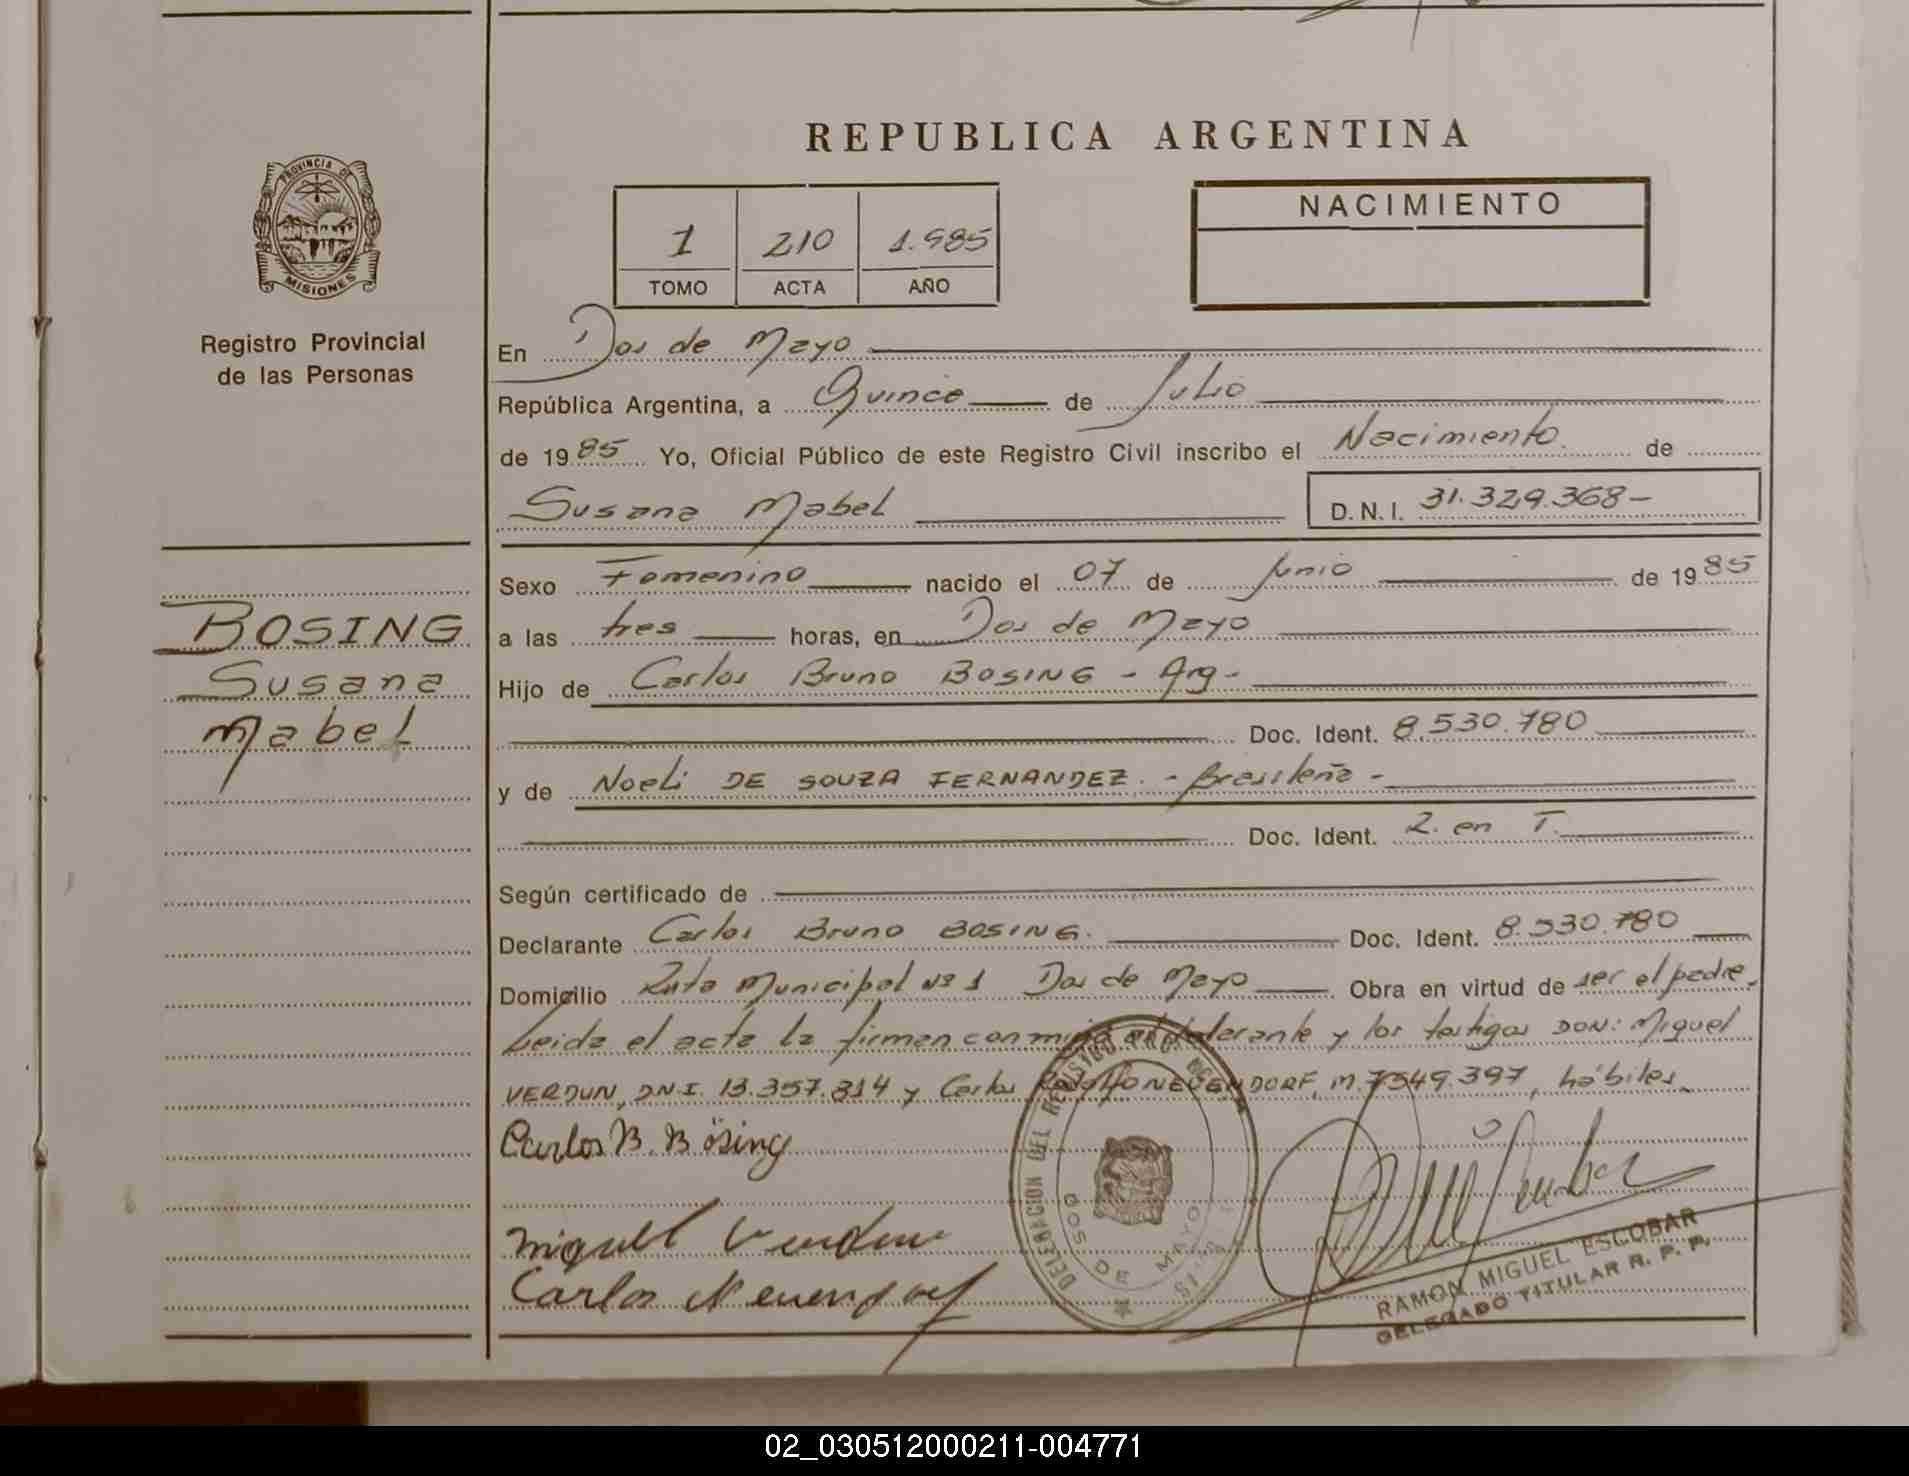 REPUBLICA ARGENTINA
PROVINCIA DE MISIONES
Registro Provincial
de las Personas
1 210 1.985
TOMO ACTA AÑO
NACIMIENTO
En Dos de Mayo
República Argentina, a Quince de Julio
de 1985 Yo, Oficial Público de este Registro Civil inscribo el Nacimiento de
Susana Mabel D.N.I. 31.329.368-
BOSING
Susana
Mabel
Sexo Femenino nacido el 07 de Junio de 1985
a las tres horas, en Dos de Mayo
Hijo de Carlos Bruno BOSING - Arg-
Doc. Ident. 8.530.780
y de Noeli DE SOUZA FERNANDEZ. - Brasileña -
Doc. Ident. 2. en T.
Según certificado de
Declarante Carlos Bruno BOSING. Doc. Ident. 8.530.780
Domicilio Ruta Municipal Nº 1 Dos de Mayo Obra en virtud de ser el padre.
Leida el acta la firman conmigo el declarante y los testigos DON: Miguel
VERDUN, DNI. 13.357.814 y Carlos NEUENDORF, M. 7549.397, hábiles.
Carlos B. Bösing
Miguel Verdun
Carlos Neuendorf
DELEGACION DEL REGISTRO
DOS DE MAYO
RAMON MIGUEL ESCOBAR
DELEGADO TITULAR R. P. P.
02_030512000211-004771